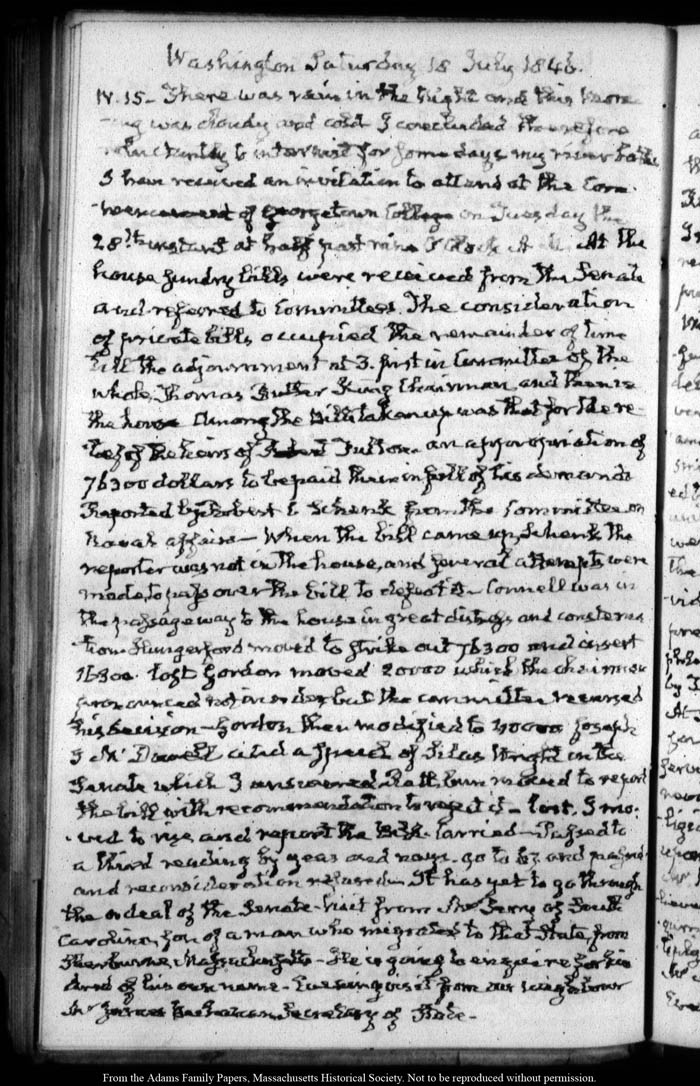 Washington Saturday 18 July 1846.
IV. 15 – There was rain in the Night and this Morn-
-ing was cloudy and cold I concluded therefore
reluctantly to intermit for some days my river bathe
I have received an invitation to attend at the Com-
-mencement of Georgetown College on Tuesday the
28th instant at half past nine O'Clock A.M. At the
house sundry bills were received from the Senate
and referred to Committees. The consideration
of private bills occupied the remainder of time
till the adjournment at 3. first in Committee of the
whole, Thomas Butler King Chairman and then in
the house Among the Bills taken up was that for the re-
lief of the heirs of Robert Fulton. an appropriation of
76300 dollars to be paid them in full of his demands
Reported by Robert C Schenk from the Committee on
Naval affairs – When the bill came up, Schenk the
reporter was not in the house, and several attempts were
made, to pass over the bill to defeat it – Connell was in
the passage way to the house in great distress and consterna
tion. Hungerford moved to strike out 76300 and insert
16300. lost Gordon moved 20000 which the chairman
pronounced not in order but the committee reversed
his decision – Gordon then modified to 40000 Joseph
J McDowell cited a speech of Silas Wright in the
Senate which I answered. Rathbun moved to report
the bill with recommendation to reject it – lost. I mo-
-ved to rise and report the Bill. Carried – Passed to
a third reading by yeas and nays. 90 to 62 and passed
and reconsideration refused – It has yet to go through
the ordeal of the Senate – Visit from Mr Perry of South
Carolina, son of a man who migrated to that State, from
Sherburne, Massachusetts – He is going to enquire for his
kindred of his own name – Evening visit from our neighbour
Mr James Buchanan Secretary of State –
From the Adams Family Papers, Massachusetts Historical Society. Not to be reproduced without permission.